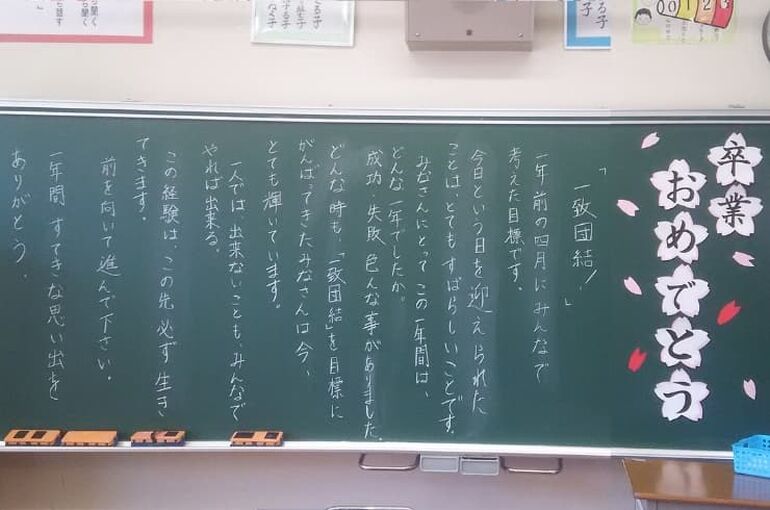 卒業
おめでとう
「一致団結！」
一年前の四月にみんなで
考えた目標です。
今日という日を迎えられた
ことは、とてもすばらしいことです。
みなさんにとってこの一年間は、
どんな一年でしたか。
成功、失敗、色んな事がありました。
どんな時も、「一致団結」を目標に
がんばってきたみなさんは今、
とても輝いています。
一人では、出来ないことも、みんなで
やれば出来る。
この経験は、この先必ず生き
てきます。
前を向いて進んで下さい。
一年間すてきな思い出を
ありがとう。